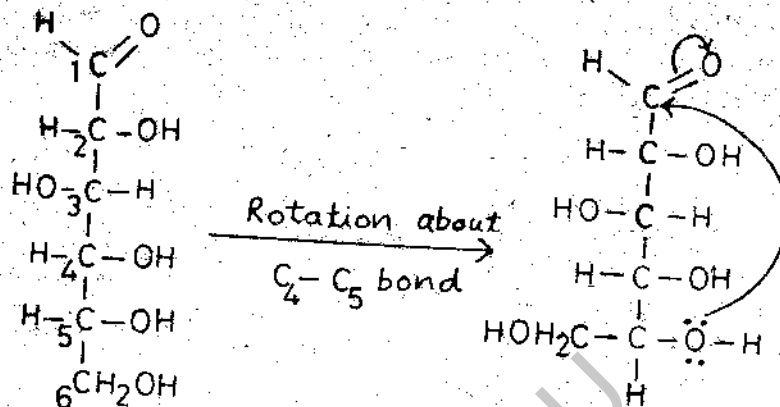 H O
1C
H-2C-OH
HO-3C-H
H-4C-OH
H-5C-OH
6CH₂OH
Rotation about
C₄-C₅ bond
H O
C
H-C-OH
HO-C-H
H-C-OH
HOH₂C-C-O-H
H